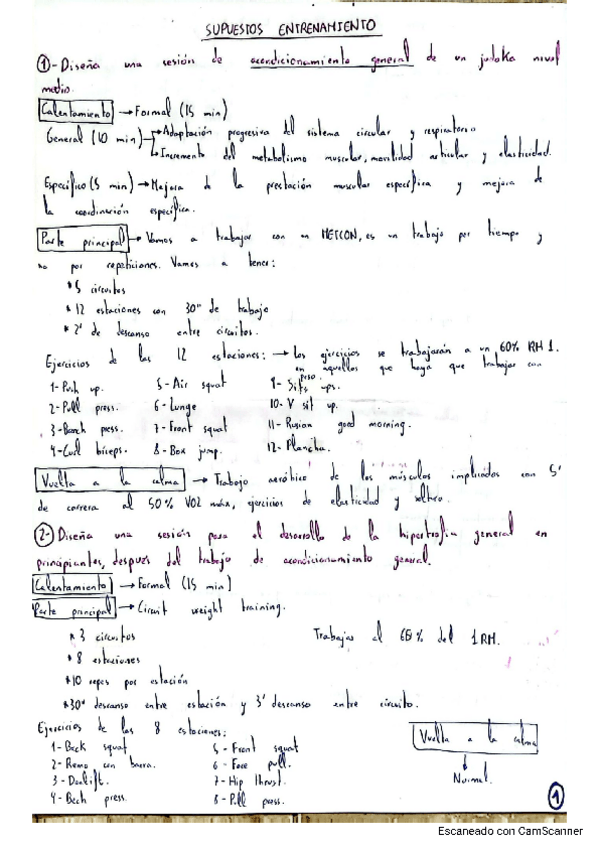 SUPUESTOS ENTRENAMIENTO
①- Diseña una sesión de acondicionamiento general de un judoka nivel
medio.
Calentamiento → Formal (15 min)
General (10 min) → Adaptación progresiva del sistema circular y respiratorio
↳ Incremento del metabolismo muscular, movilidad articular y elasticidad.
Específico (5 min) → Mejora de la prestación muscular específica y mejora de
la coordinación específica.
Parte principal → Vamos a trabajar con un METCON, es un trabajo por tiempo y
no por repeticiones. Vamos a tener:
* 5 circuitos
* 12 estaciones con 30" de trabajo
* 2' de descanso entre circuitos.
Ejercicios de las 12 estaciones: → Los ejercicios se trabajarán a un 60% RM 1.
en aquellos que haya que trabajar con
peso
1- Push up. 5- Air squat 9- Sits ups.
2- Pull press. 6- Lunge 10- V sit up.
3- Bench press. 7- Front squat 11- Rusian good morning.
4- Curl bíceps. 8- Box jump. 12- Plancha.
Vuelta a la calma → Trabajo aeróbico de los músculos implicados con 5'
de carrera al 50% VO2 máx, ejercicios de elasticidad y
② Diseña una sesión para el desarrollo de la hipertrofia general en
principiantes, después del trabajo de acondicionamiento general.
Calentamiento → Formal (15 min)
Parte principal → Circuit weight training.
* 3 circuitos Trabajas al 60% del 1RM.
* 8 estaciones
* 10 repes por estación
* 30" descanso entre estación y 3' descanso entre circuito.
Ejercicios de las 8 estaciones:
1- Back squat 5- Front squat
2- Remo con barra. 6- Face pull.
3- Deadlift. 7- Hip thrust.
4- Bech press. 8- Pull press.
Vuelta a la calma
↓
Normal.
①
Escaneado con CamScanner